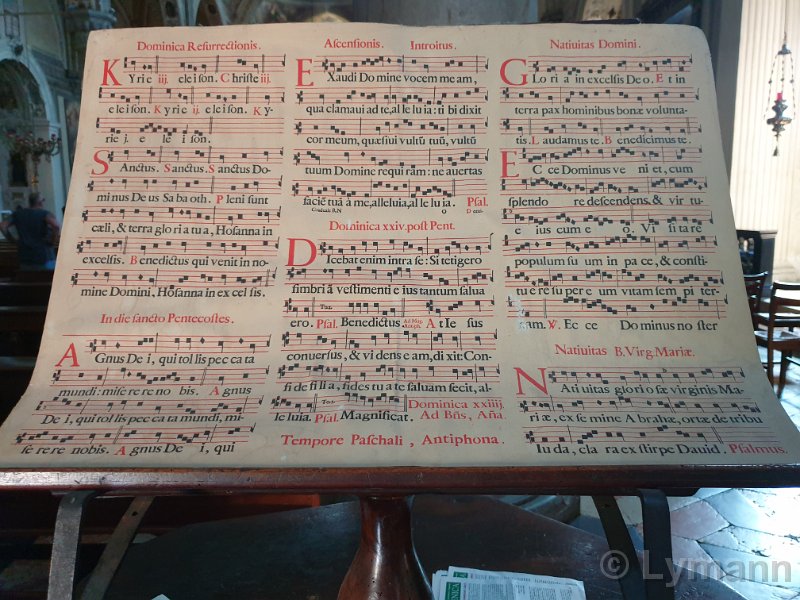 Dominica Resurrectionis.
Kyrie iij. eleison. Christe iij.
eleison. Kyrie ij. eleison. Ky-
rie j. e le i son.
Sanctus. Sanctus. Sanctus Do-
minus Deus Sabaoth. Pleni sunt
cæli, & terra gloria tua, Hosanna in
excelsis. Benedictus qui venit in no-
mine Domini, Hosanna in excelsis.
In die sancto Pentecostes.
Agnus Dei, qui tollis peccata
mundi: miserere nobis. Agnus
Dei, qui tollis peccata mundi, mi-
serere nobis. Agnus Dei, qui
Ascensionis. Introitus.
Exaudi Domine vocem meam,
qua clamavi ad te, alleluia: tibi dixit
cor meum, quæsivi vultũ tuũ, vultũ
tuum Domine requiram: ne avertas
faciē tuã à me, alleluia, alleluia. Psal.
Dominica xxiv. post Pent.
Dicebat enim intra se: Si tetigero
fimbriã vestimenti eius tantum salva
ero. Psal. Benedictus. At Iesus
conversus, & videns eam, dixit Con-
fide filia, fides tua te salvam fecit, al-
leluia. Psal. Magnificat. Dominica xxiiij.
Ad Bñs, Aña
Tempore Paschali, Antiphona.
Nativitas Domini.
Gloria in excelsis Deo. Et in
terra pax hominibus bonæ volunta-
tis. Laudamus te. Benedicimus te.
Ecce Dominus veniet, cum
splendore descendens, & vir tu-
e ius cum eo. Visitare
populum suum in pace, & consti-
tuere super eum vitam sempiter-
nam. ℣. Ecce Dominus noster
Nativitas B. Virg. Mariæ.
Nativitas gloriosæ virginis Ma-
riæ, ex semine Abrahæ, ortæ de tribu
Iuda, clara ex stirpe David. Psalmus.
© Lymann